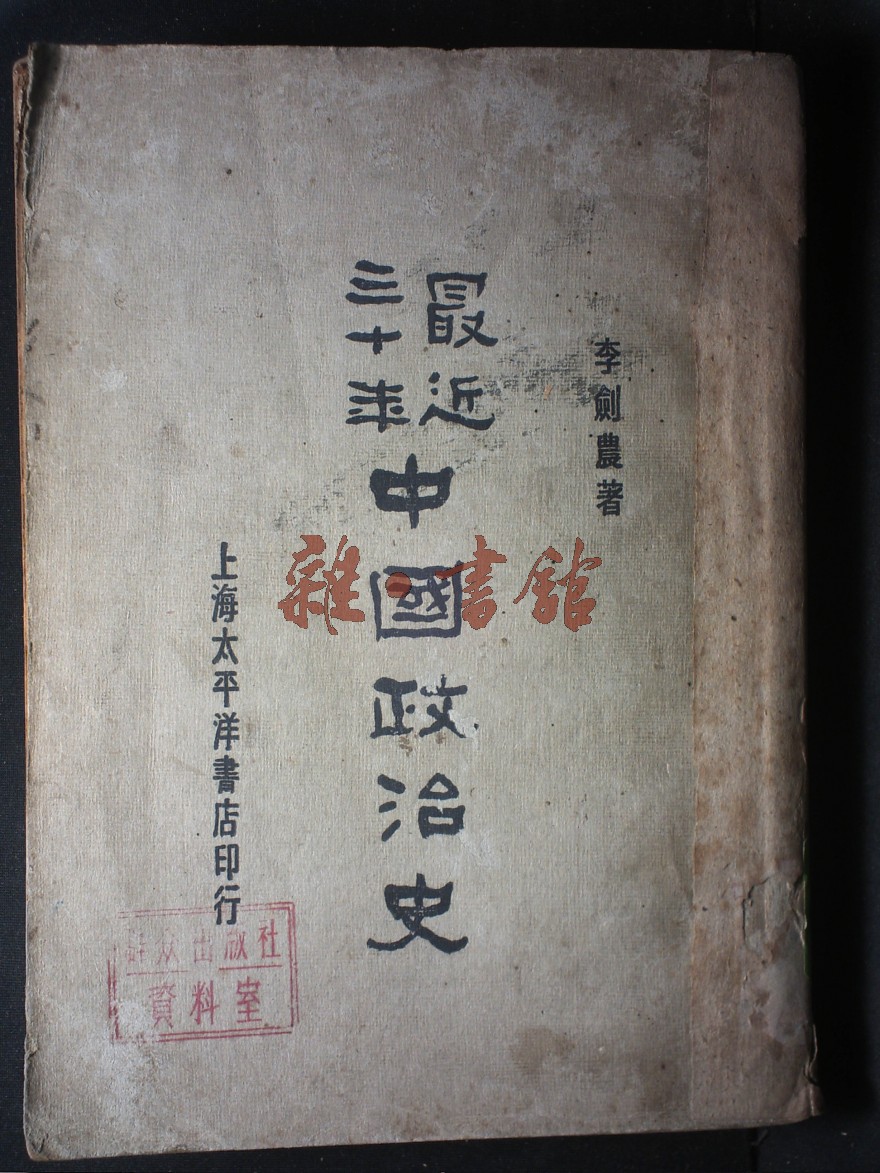 李劍農著
最近
三十年
中國政治史
上海太平洋書店印行
雜·書館
群众出版社
資料室